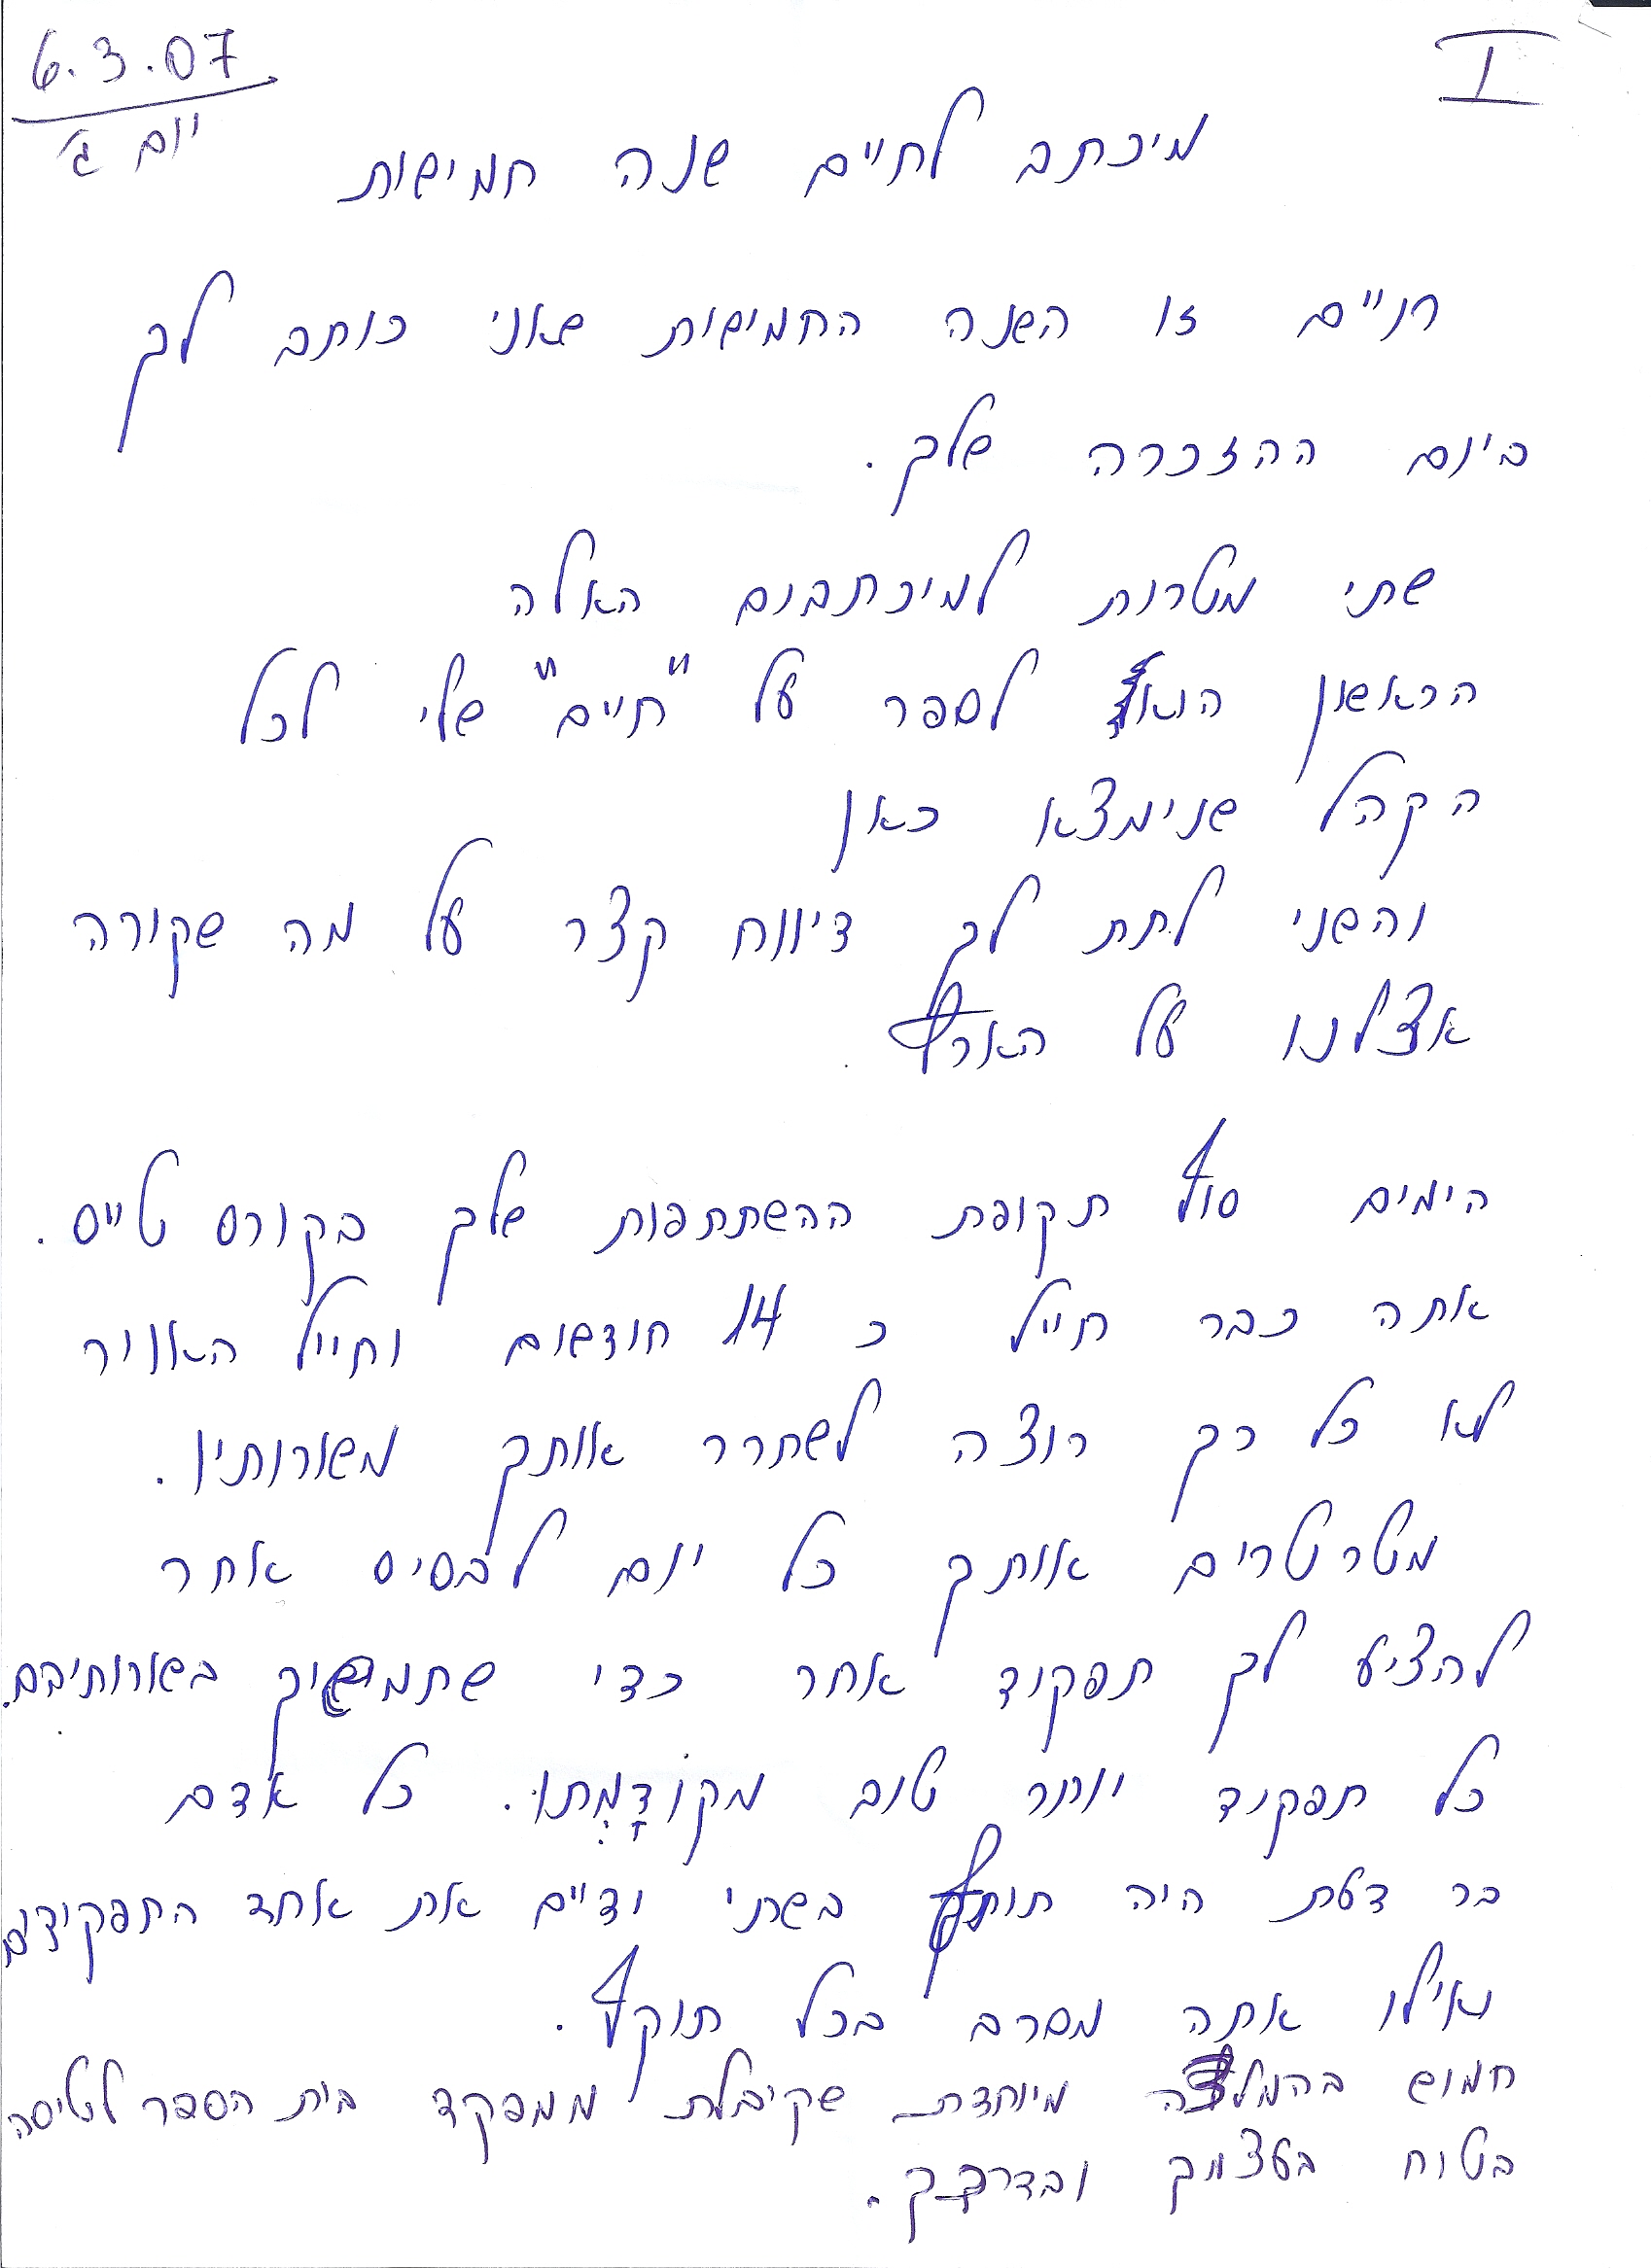 I
6.3.07
יום ג'
מיכתב לחיים שנה חמישית
חיים זו השנה החמישית שאני כותב לך
ביום ההזכרה שלך.
שתי מטרות למיכתבים האלה
הראשון הוא לספר על "חיים" שלי לכל
הקהל שנימצא כאן
והשני לתת לך דיווח קצר על מה שקורה
אצלנו על הארץ.
הימים סוף תקופת ההשתתפות שלך בקורס טייס.
אתה כבר חייל כ 14 חודשים וחייל האוויר
לא כל כך רוצה לשחרר אותך משורותיו.
מטרטרים אותך כל יום לבסיס אחר
להציע לך תפקיד אחר כדי שתמשיך בשורותיהם.
כל תפקיד יותר טוב מקודָמְתוּ. כל אדם
בר דעת היה חוטף בשתי ידיים את אחד התפקידים
ואילו אתה מסרב בכל תוקף.
חמוש בהמלצה מיוחדת שקיבלת ממפקד בית הספר לטיסה
בטוח בעצמך ובדרכך.